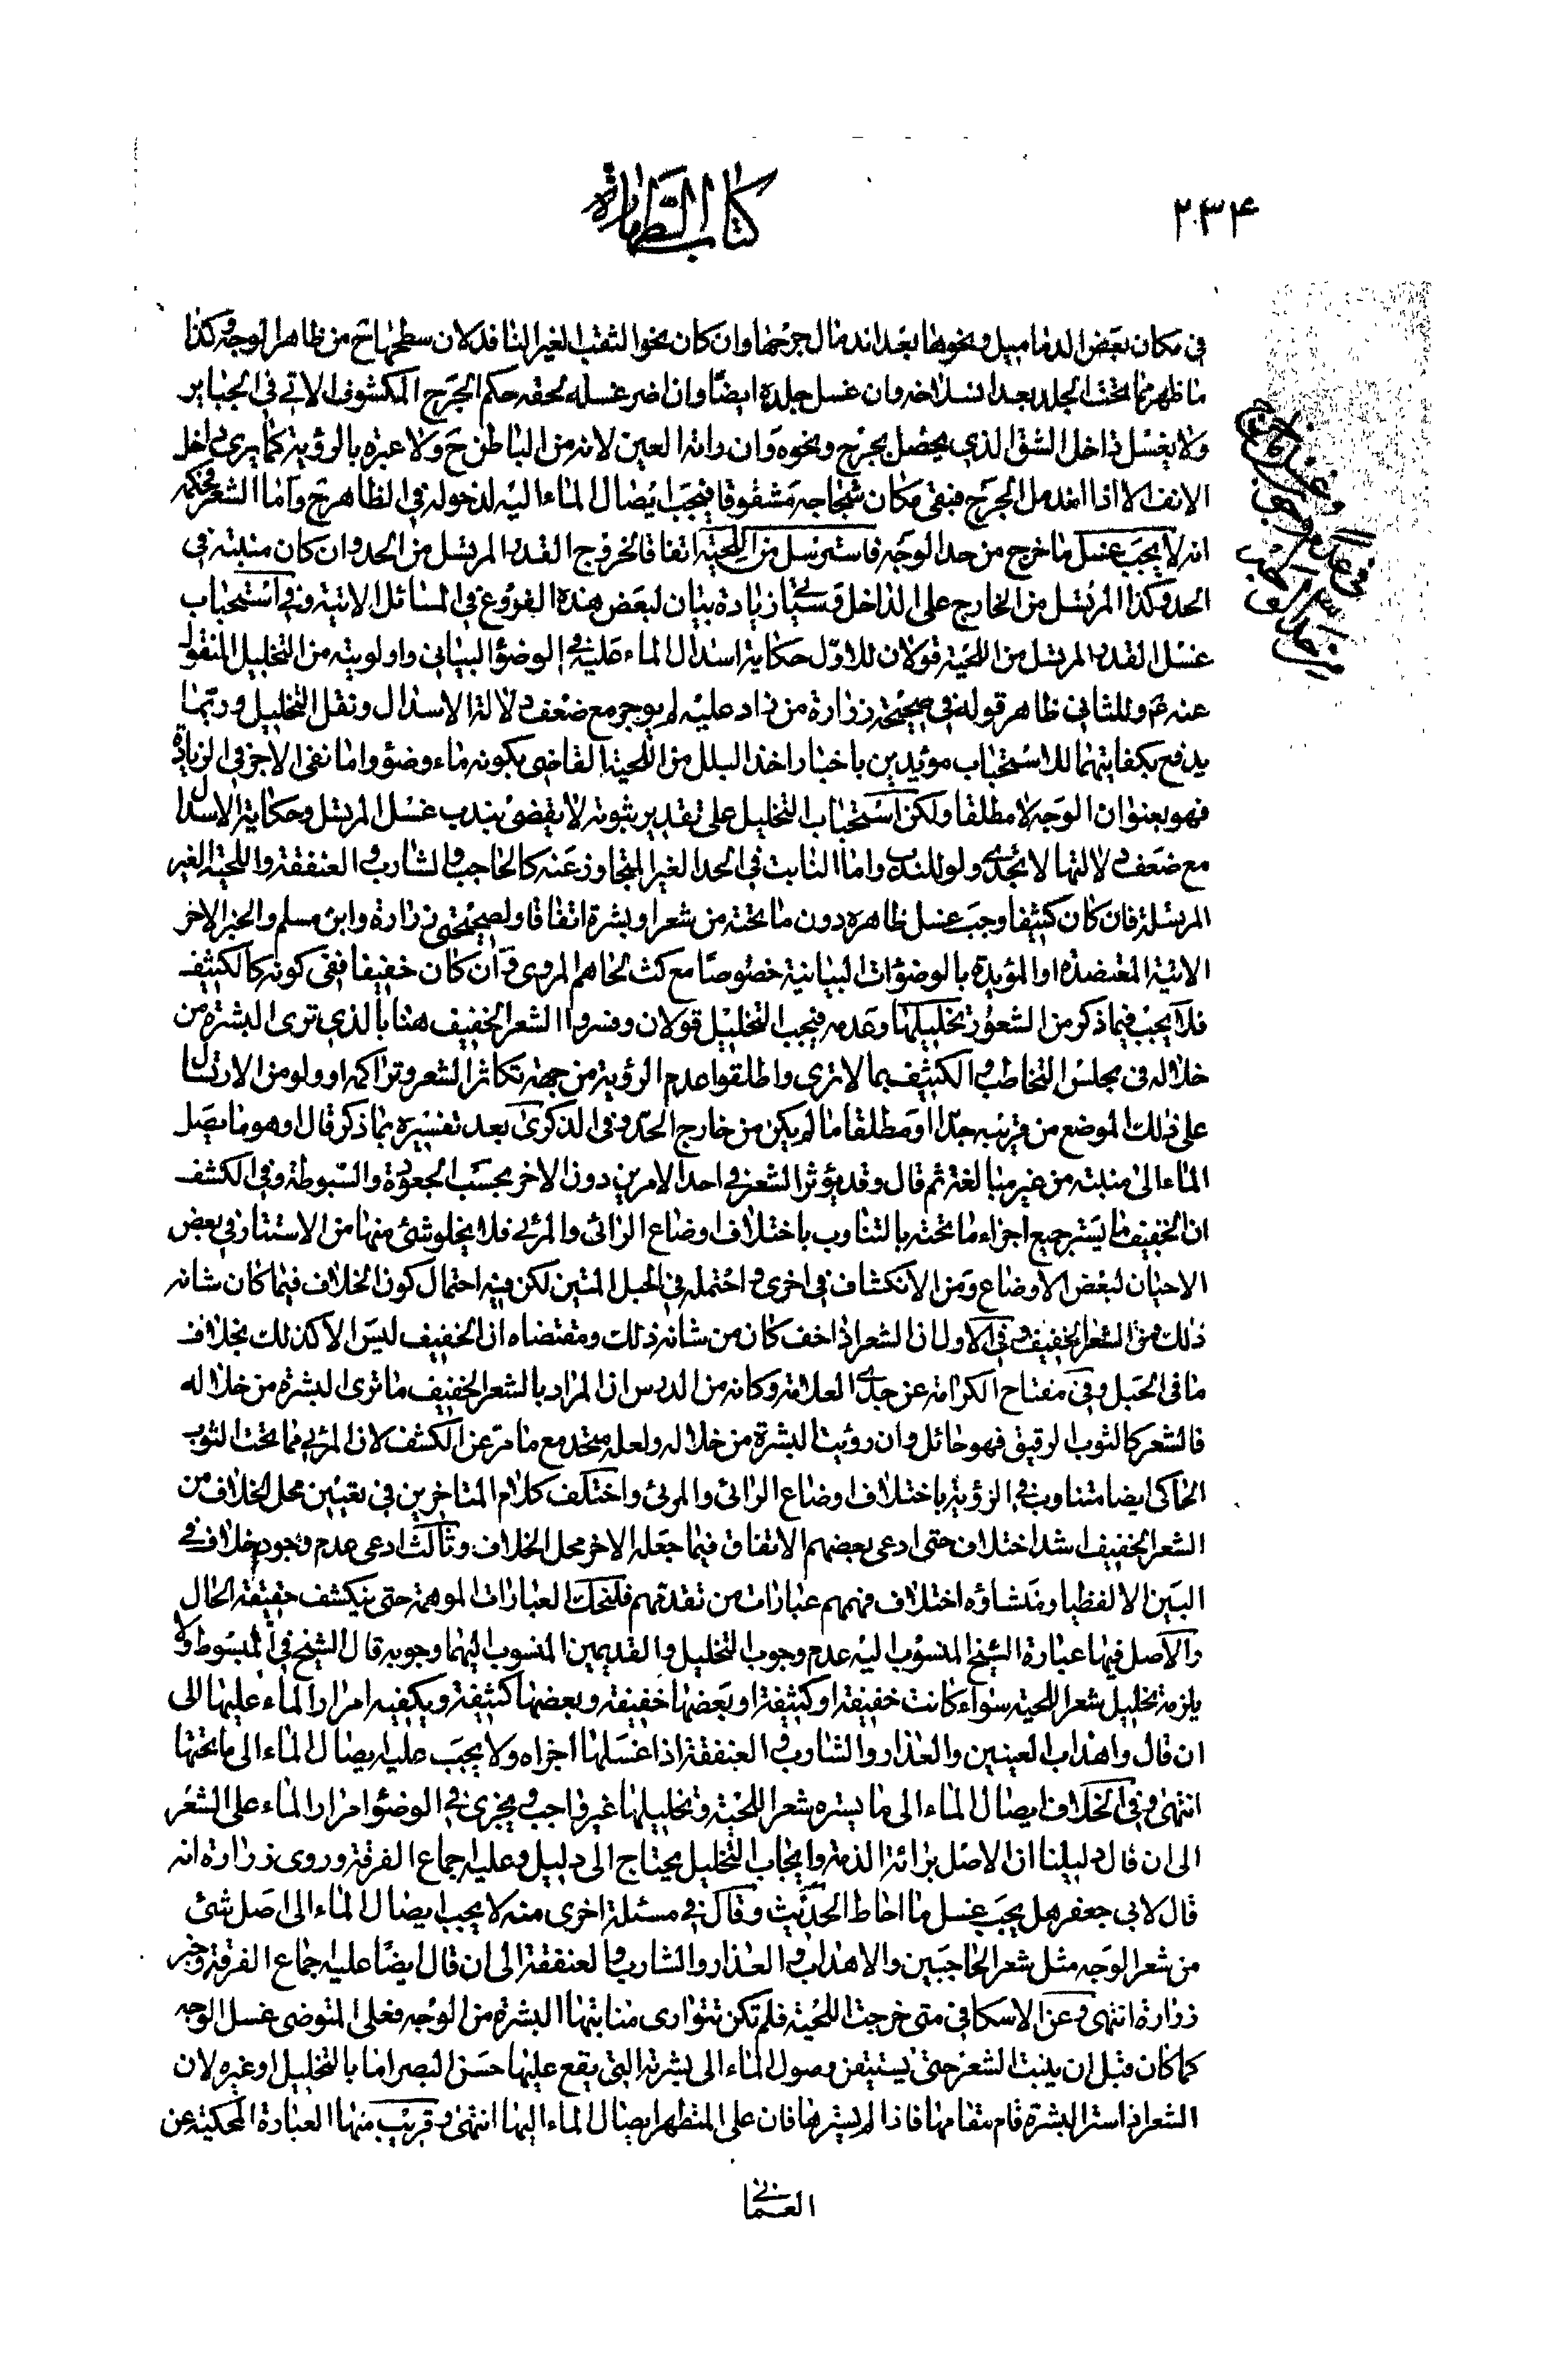 ٢٣۴
كتاب الطهارة
في مكان بعض الدماميل ونحوها بعد اندمال جرحها وان كان بنحو الثقب الغير النافذ لان سطحها ح من ظاهر الوجه وكذا
ما ظهر مما تحت الجلد بعد انسلاخه وان غسل جلده ايضا وان اضر غسله لحقه حكم الجرح المكشوف الاتي في الجباير
ولا يغسل داخل الشق الذي يحصل بجرح ونحوه وان راته العين لانه من الباطن ح ولا عبرة بالرؤية كما يرى داخل
الانف الا اذا اندمل الجرح فبقى مكان شجاجه مشقوقا فيجب ايصال الماء اليه لدخوله في الظاهر ح واما الشعر فحكمه
انه لا يجب غسل ما خرج من حد الوجه فاسترسل من اللحية اتفاقا لخروج القدر المرسل من الحد وان كان منبته في
الحد وكذا المرسل من الخارج على الداخل وسياتي زيادة بيان لبعض هذه الفروع في المسائل الاتية وفي استحباب
غسل القدر المرسل من اللحية قولان للاول حكاية اسدال الماء عليه في الوضوء البياني واولويته من التخليل المنقول
عنه ع وللثاني ظاهر قوله في صحيحة زرارة من زاد عليه لم يوجر مع ضعف دلالة الاسدال ونقل التخليل وربما
يدفع بكفايتهما للاستحباب مؤيدين باخبار اخذ البلل من اللحية القاضي بكونه ماء وضوء واما نفى الاجر في الزيادة
فهو بعنوان الوجه لا مطلقا ولكن استحباب التخليل على تقدير ثبوته لا يقضى بندب غسل المرسل وحكاية الاسدال
مع ضعف دلالتها لا تجدي ولو للندب واما النابت في الحد الغير المتجاوز عنه كالحاجب والشارب والعنفقة واللحية الغير
المرسلة فان كان كثيفا وجب غسل ظاهره دون ما تحته من شعر او بشرة اتفاقا ولصحيحتى زرارة وابن مسلم والخبر الاخر
الاتية المعتضدة او المؤيدة بالوضوءات البيانية خصوصا مع كث لحاهم المروي وان كان خفيفا ففى كونه كالكثيف
فلا يجب فيما ذكر من الشعور تخليلها وعدمه فيجب التخليل قولان وفسروا الشعر الخفيف هنا بالذي ترى البشرة من
خلاله في مجلس التخاطب والكثيف بما لا ترى واطلقوا عدم الرؤية من جهة تكاثر الشعر وتراكمه او ولو من الارسال
على ذلك الموضع من قريبه جدا او مطلقا ما لم يكن من خارج الحد وفي الذكرى بعد تفسيره بما ذكر قال او هو ما يصل
الماء الى منبته من غير مبالغة ثم قال وقد يؤثر الشعر في احد الامرين دون الاخر بحسب الجعودة والسبوطة وفي الكشف
ان الخفيف ما يستر جميع اجزاء ما تحته بالتناوب باختلاف اوضاع الرائى والمرئي فلا يخلو شئ منها من الاستتار في بعض
الاحيان لبعض الاوضاع ومن الانكشاف في اخرى واحتمله في الحبل المتين لكن فيه احتمال كون الخلاف فيما كان شانه
ذلك من الشعر الخفيف وفي الاول ان الشعر اذا خف كان من شانه ذلك ومقتضاه ان الخفيف ليس الا كذلك بخلاف
ما في الحبل وفي مفتاح الكرامة عن جدي العلامة وكانه من الدرس ان المراد بالشعر الخفيف ما ترى البشرة من خلاله
فالشعر كالثوب الرقيق فهو حائل وان رؤيت البشرة من خلاله ولعله متحد مع ما مر عن الكشف لان المرئي مما تحت الثوب
الحاكي ايضا متناوب في الرؤية باختلاف اوضاع الرائى والمرئى واختلف كلام المتاخرين في تعيين محل الخلاف من
الشعر الخفيف اشد اختلاف حتى ادعى بعضهم الاتفاق فيما جعله الاخر محل الخلاف وثالث ادعى عدم وجود خلاف في
البين الا لفظيا ومنشاؤه اختلاف فهمهم عبارات من تقدمهم فلنحك العبارات الموهمة حتى ينكشف حقيقة الحال
والاصل فيها عبارة الشيخ المنسوب اليه عدم وجوب التخليل والقديمين المنسوب اليهما وجوبه قال الشيخ في المبسوط ولا
يلزمه تخليل شعر اللحية سواء كانت خفيفة او كثيفة او بعضها خفيفة وبعضها كثيفة ويكفيه امرار الماء عليها الى
ان قال واهداب العينين والعذار والشارب والعنفقة اذا غسلها اجزاه ولا يجب عليه ايصال الماء الى ما تحتها
انتهى وفي الخلاف ايصال الماء الى ما يستره شعر اللحية وتخليلها غير واجب ويجزى في الوضوء امرار الماء على الشعر
الى ان قال دليلنا ان الاصل برائة الذمة وايجاب التخليل يحتاج الى دليل وعليه اجماع الفرقة وروى زرارة انه
قال لابي جعفر هل يجب غسل ما احاط الحديث وقال في مسئلة اخرى منه لا يجب ايصال الماء الى اصل شئ
من شعر الوجه مثل شعر الحاجبين والاهداب والعذار والشارب والعنفقة الى ان قال ايضا عليه اجماع الفرقة وخبر
زرارة انتهى وعن الاسكافي متى خرجت اللحية فلم تكن تتوارى منابتها البشرة من الوجه فعلى المتوضى غسل الوجه
كما كان قبل ان ينبت الشعر حتى يستيقن وصول الماء الى بشرته التي يقع عليها حسن البصر اما بالتخليل او غيره لان
الشعر اذا ستر البشرة قام مقامها فاذا لم يسترها فان على المتطهر ايصال الماء اليها انتهى وقريب منها العبارة المحكية عن
العماني